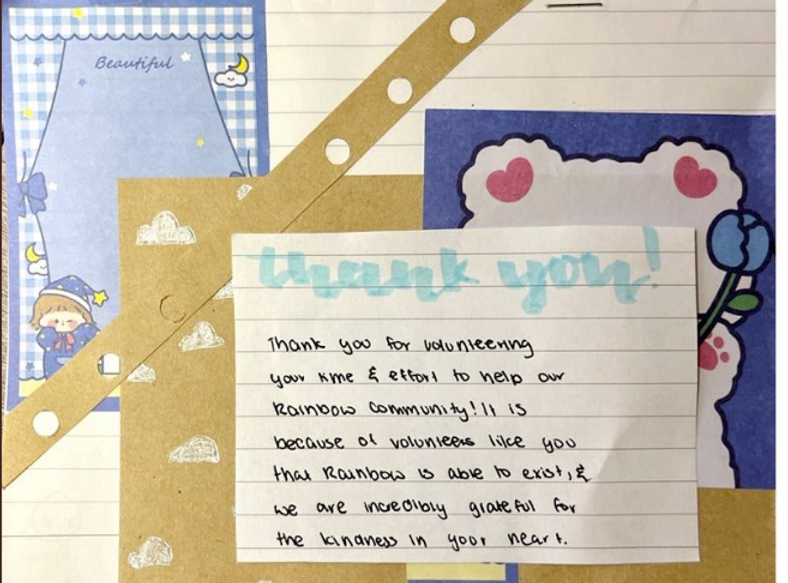 Beautiful
thank you!
Thank you for volunteering
your time & effort to help our
Rainbow community! It is
because of volunteers like you
that Rainbow is able to exist, &
we are incredibly grateful for
the kindness in your heart.